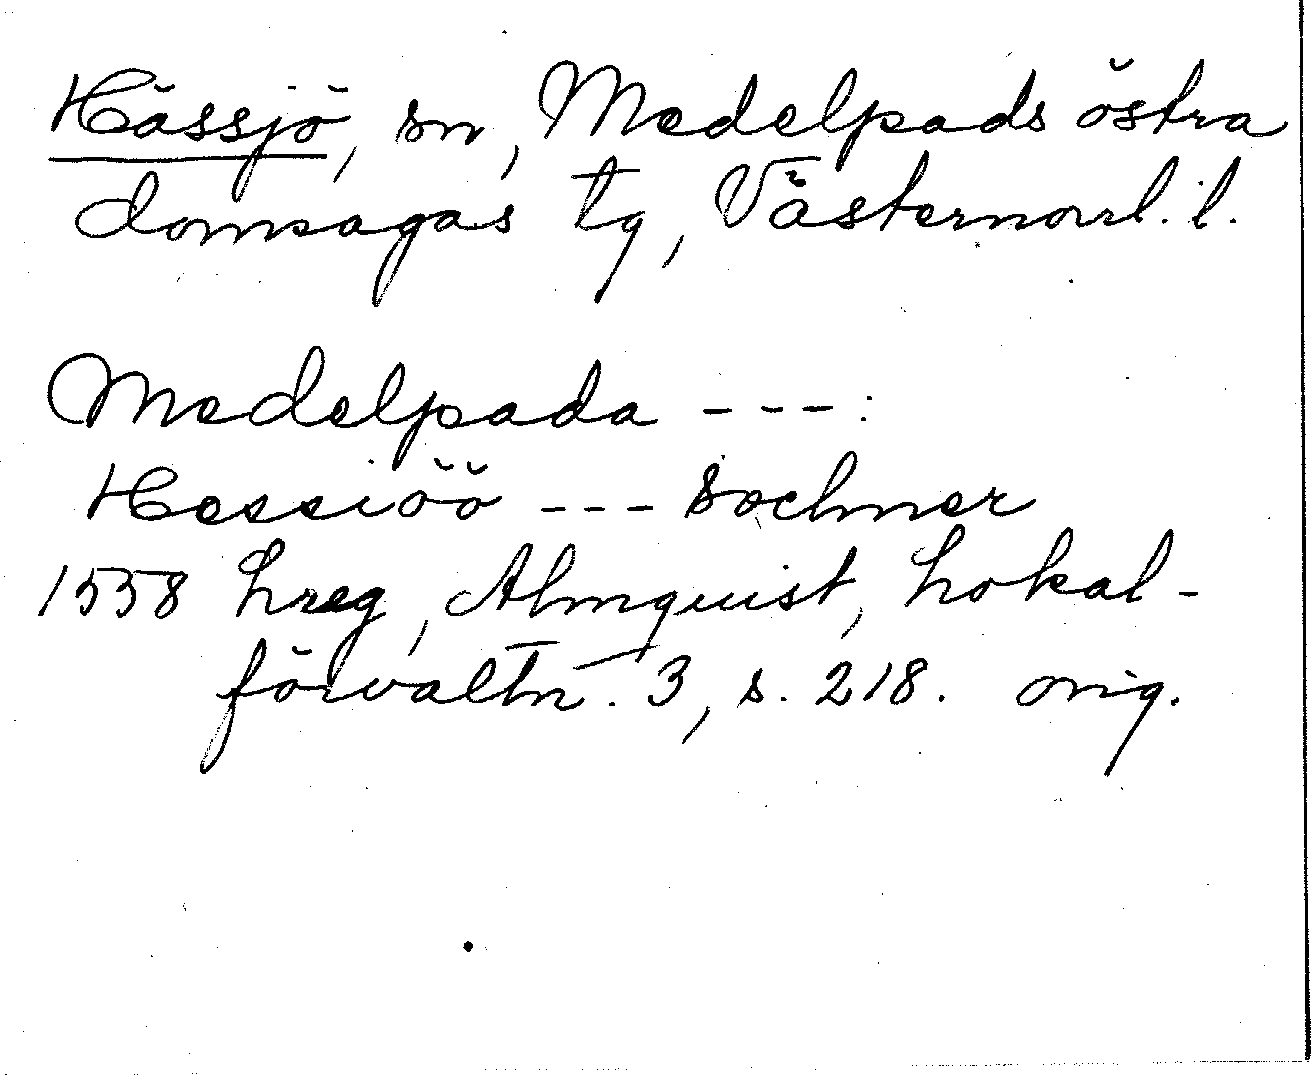 Hässjö, sn, Medelpads östra
domsagas tg, Västernorrl. l.
Medelpada ---:
Hessiöö --- sochner
1558 Lreg, Almquist, Lokal-
förvaltn. 3, s. 218. orig.